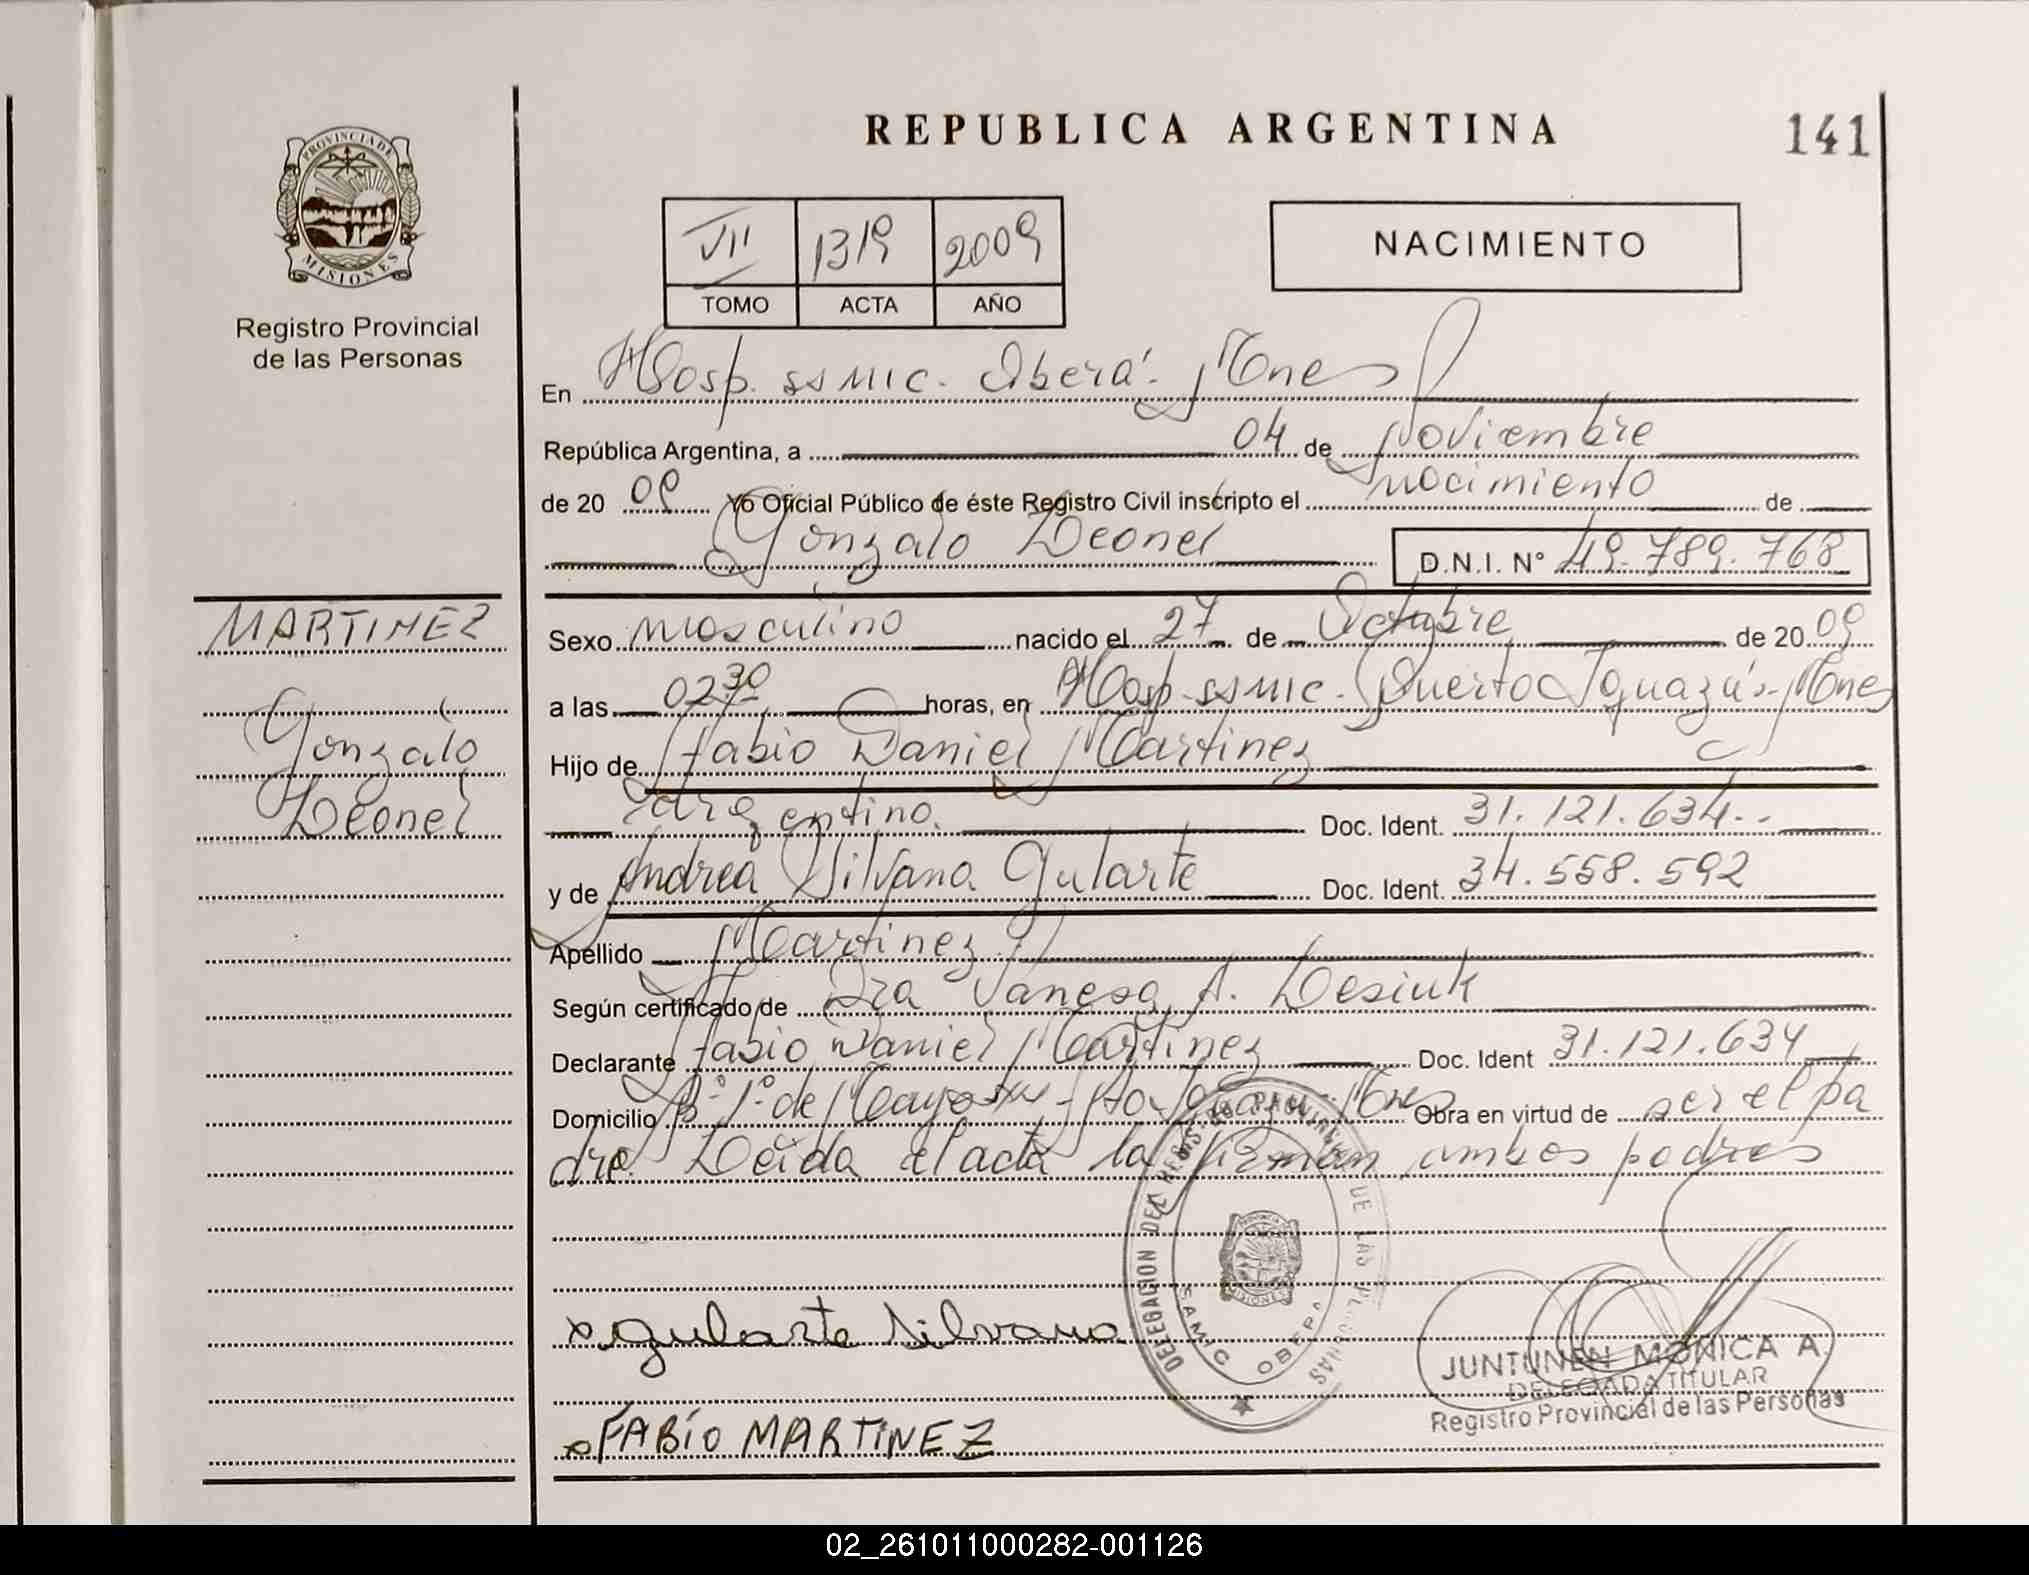 REPUBLICA ARGENTINA
141
PROVINCIA DE
MISIONES
Registro Provincial
de las Personas
VII 1319 2009
TOMO ACTA AÑO
NACIMIENTO
En Hosp. SAMIC. Oberá. Mnes
República Argentina, a 04 de Noviembre
de 20 09 Yo Oficial Público de éste Registro Civil inscripto el nacimiento de
Gonzalo Leonel D.N.I. N° 49.789.768
MARTINEZ
Gonzalo
Leonel
Sexo masculino nacido el 27 de Octubre de 20 09
a las 02.30 horas, en Hosp. SAMIC. Puerto Iguazú. Mnes
Hijo de Fabio Daniel Martinez
Argentino. Doc. Ident. 31.121.634..
y de Andrea Silvana Gularte Doc. Ident. 34.558.592
Apellido Martinez
Según certificado de Dra Vanesa A. Lesiuk
Declarante Fabio Daniel Martinez Doc. Ident 31.121.634
Domicilio B° 1° de Mayo Pto. Iguazú. Mnes Obra en virtud de ser el pa
dre. Leída el acta la firman ambos padres
DELEGACION DEL REGISTRO PROVINCIAL DE LAS PERSONAS
MISIONES
SAMIC OBERA
x gularte Silvana
JUNTUNEN MONICA A.
DELEGADA TITULAR
Registro Provincial de las Personas
x FABÍO MARTINEZ
02_261011000282-001126